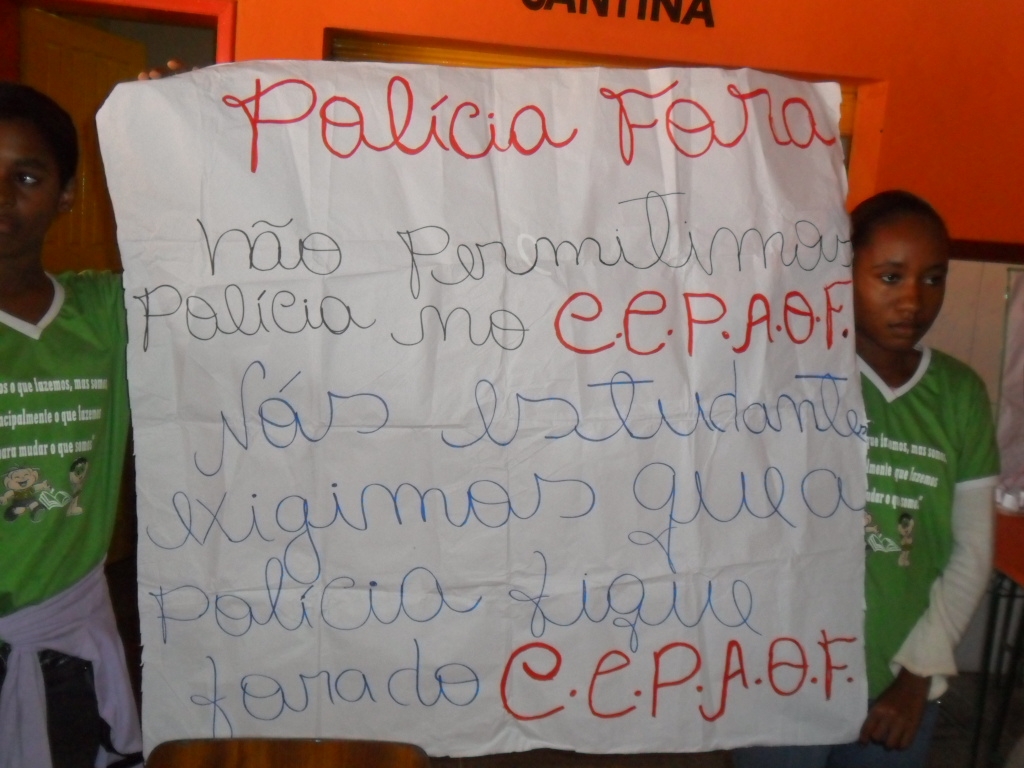 CANTINA
Polícia Fora
Não permitimos
Polícia no C.E.P.A.O.F.
Nós estudantes
exigimos que a
polícia fique
fora do C.E.P.A.O.F.
os o que fazemos, mas somos
ncipalmente o que fazemos
para mudar o que somos"
que fazemos, mas somos
lmente que fazemos
udar o que somos"